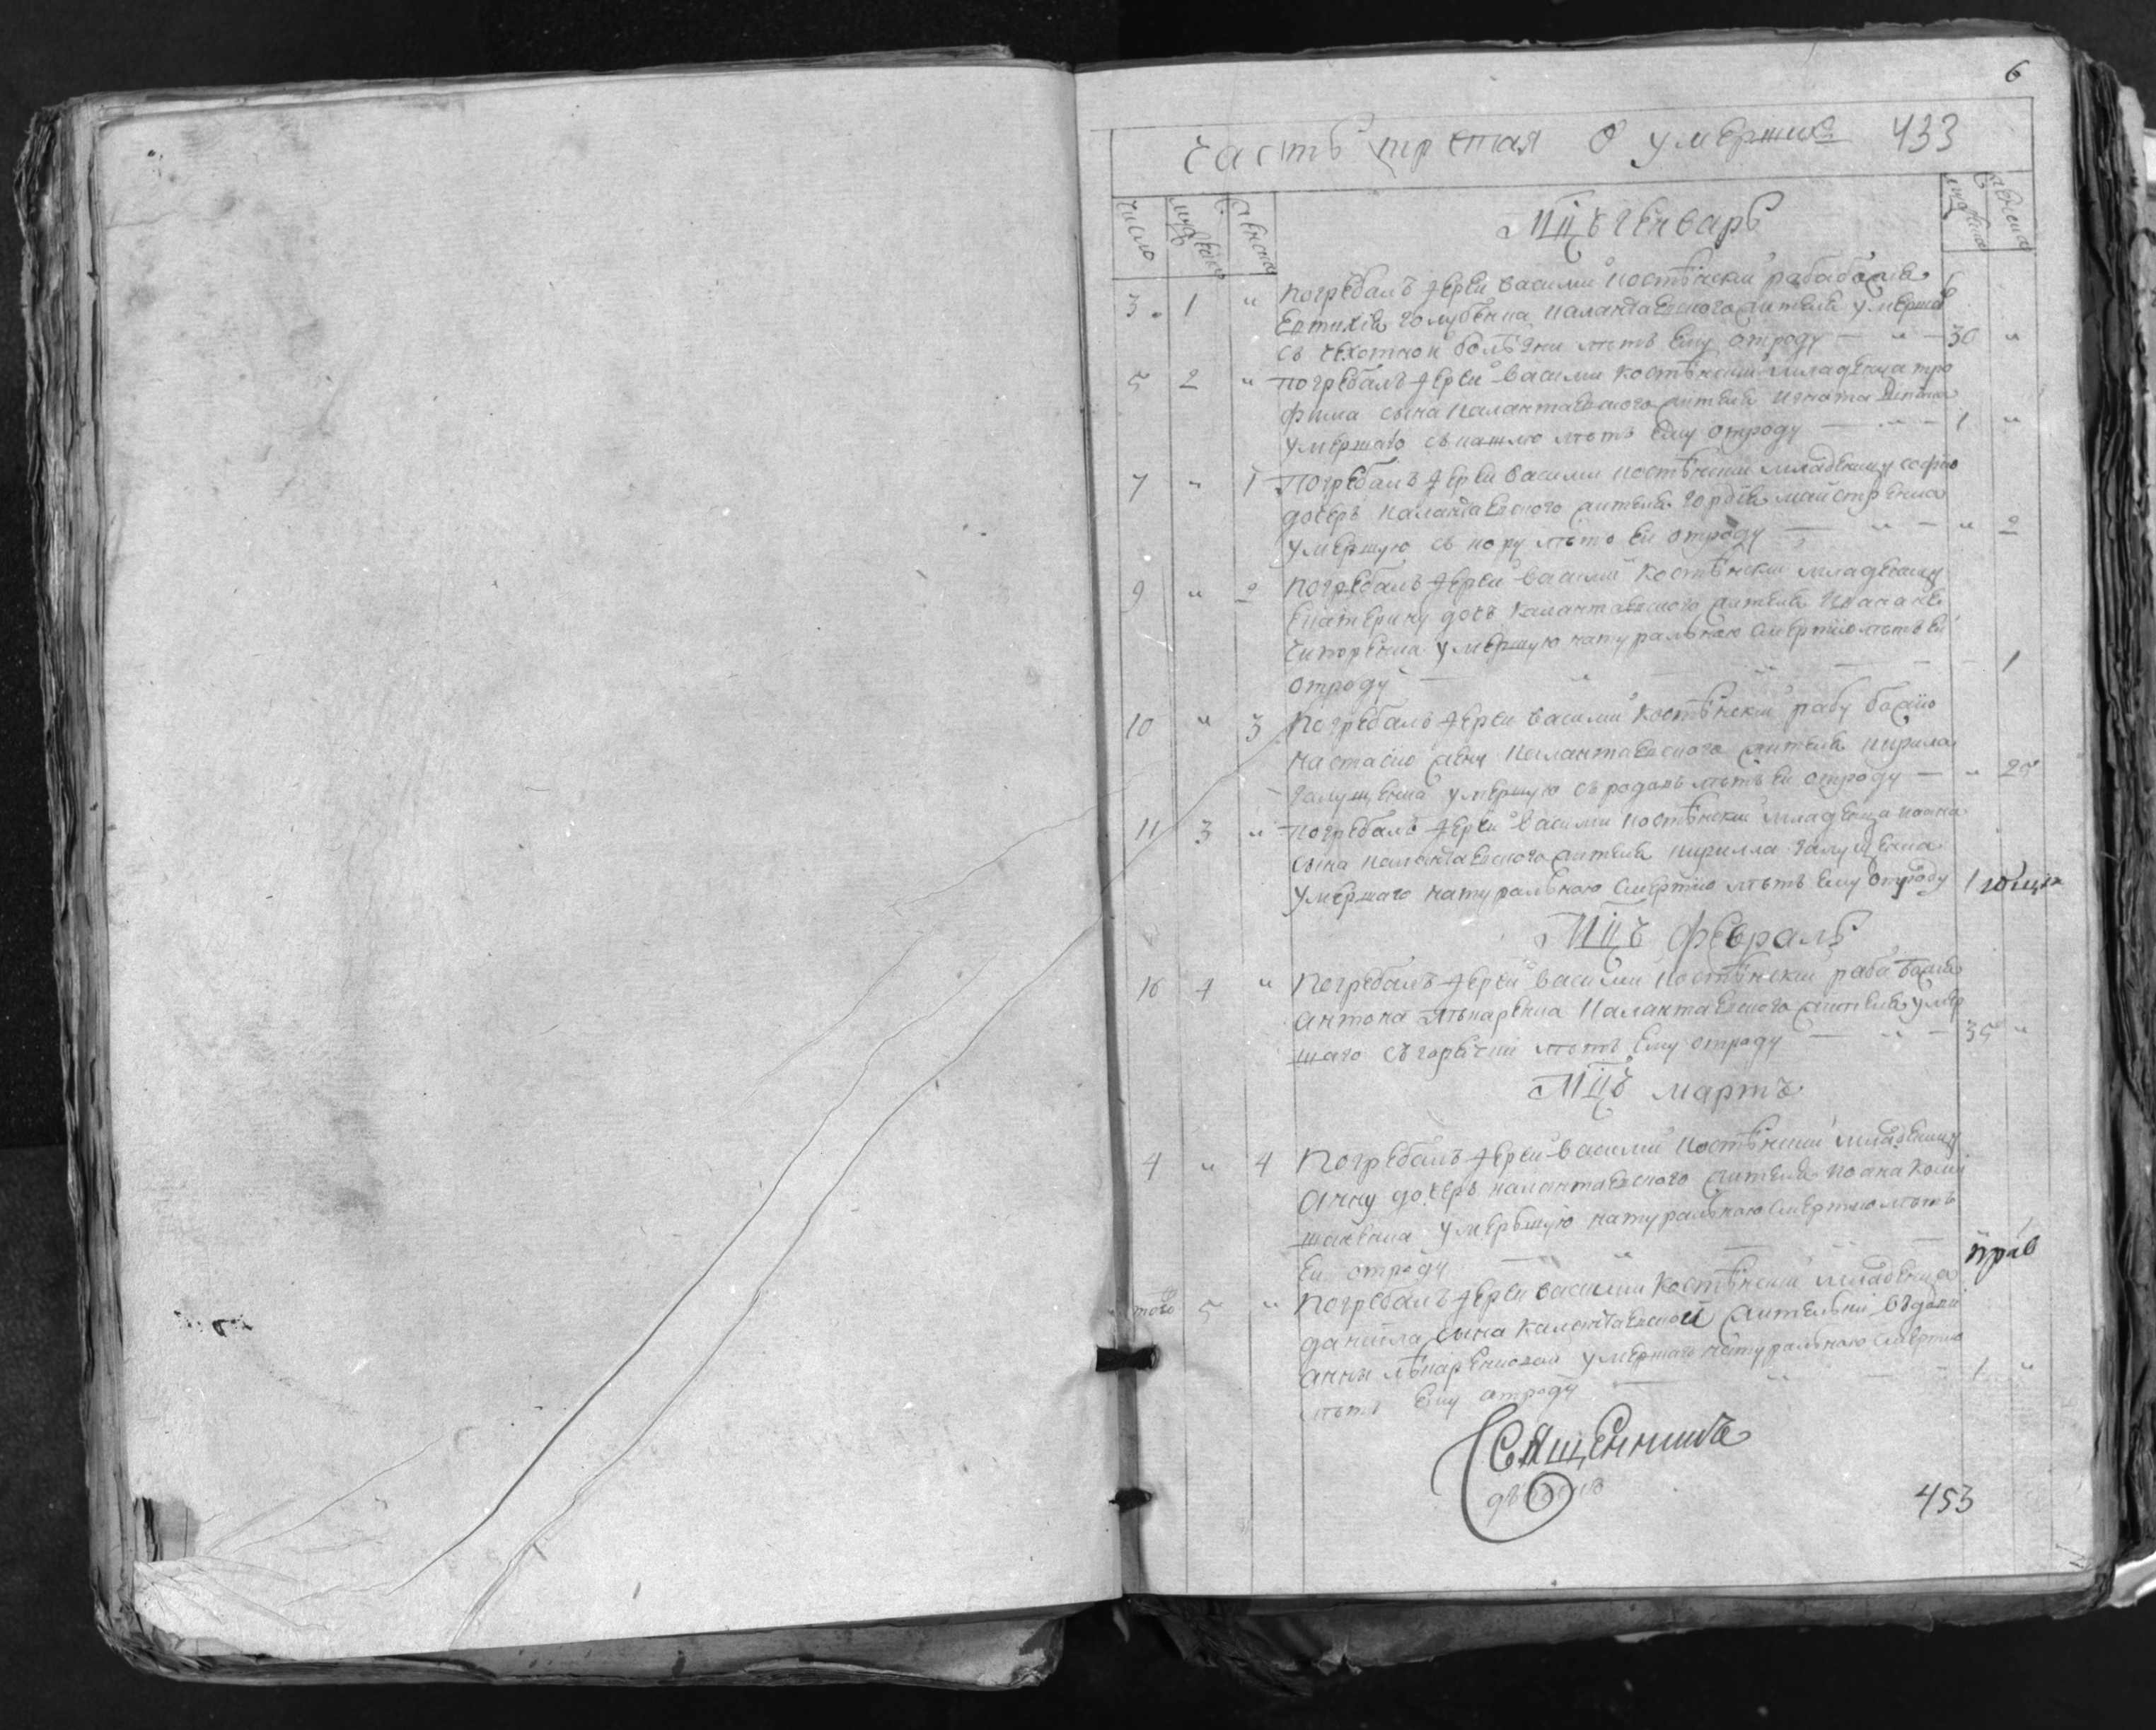 6
Часть третая о умершихъ 433
число мужеска женска
Мцъ генварь
3 1 " Погребалъ іерей василий костѣнскій раба божія
Евтихія голубенка калантаевского жителя умершаго
съ чехотной болѣзни лѣтъ ему отроду — " — 30 "
5 2 " погребалъ іерей василий костѣнскій младенца тро
фима сына калантаевского жителя игната
умершаго съ кашлю лѣтъ ему отроду — " — 1 "
7 " 1 Погребалъ іерей василий костѣнскій младеницу софію
дочеръ калантаевского жителя гордѣя майстренка
умершую съ кору лѣто ей отроду — " — " 2
9 " 2 Погребалъ іерей василий костѣнскій младеницу
Екатерину дочъ калантаевского жителя
чипоренка умершую натуральною смертію лѣтъ ей
отроду — " — " — 1
10 " 3 Погребалъ іерей василий костѣнскій рабу божію
настасію жену калантаевского жителя кирила
галущенка умершую съ родовъ лѣтъ ей отроду — " 25
11 3 " Погребалъ іерей василий костѣнскій младенца иоана
сына калантаевского жителя кирилла галущенка
умершаго натуральною смертію лѣтъ ему отроду 1
Мцъ февраль
16 4 " Погребалъ іерей василий костѣнскій раба божія
антона лѣкаренка калантаевского жителя умер
шаго съ горячки лѣтъ ему отроду — " — 35 "
Мцъ мартъ
4 " 4 Погребалъ іерей василий костѣнскій младеницу
анну дочеръ калантаевского жителя иоана коли
шаненка умершую натуральною смертію лѣтъ
ей отроду — "
того 5 " Погребалъ іерей василий костѣнскій младенца
даниила сына калантаевской жителки вдови
анни лѣкаренковой умершаго натуральною смертію
лѣтъ ему отроду — " — 1 "
Священникъ
453